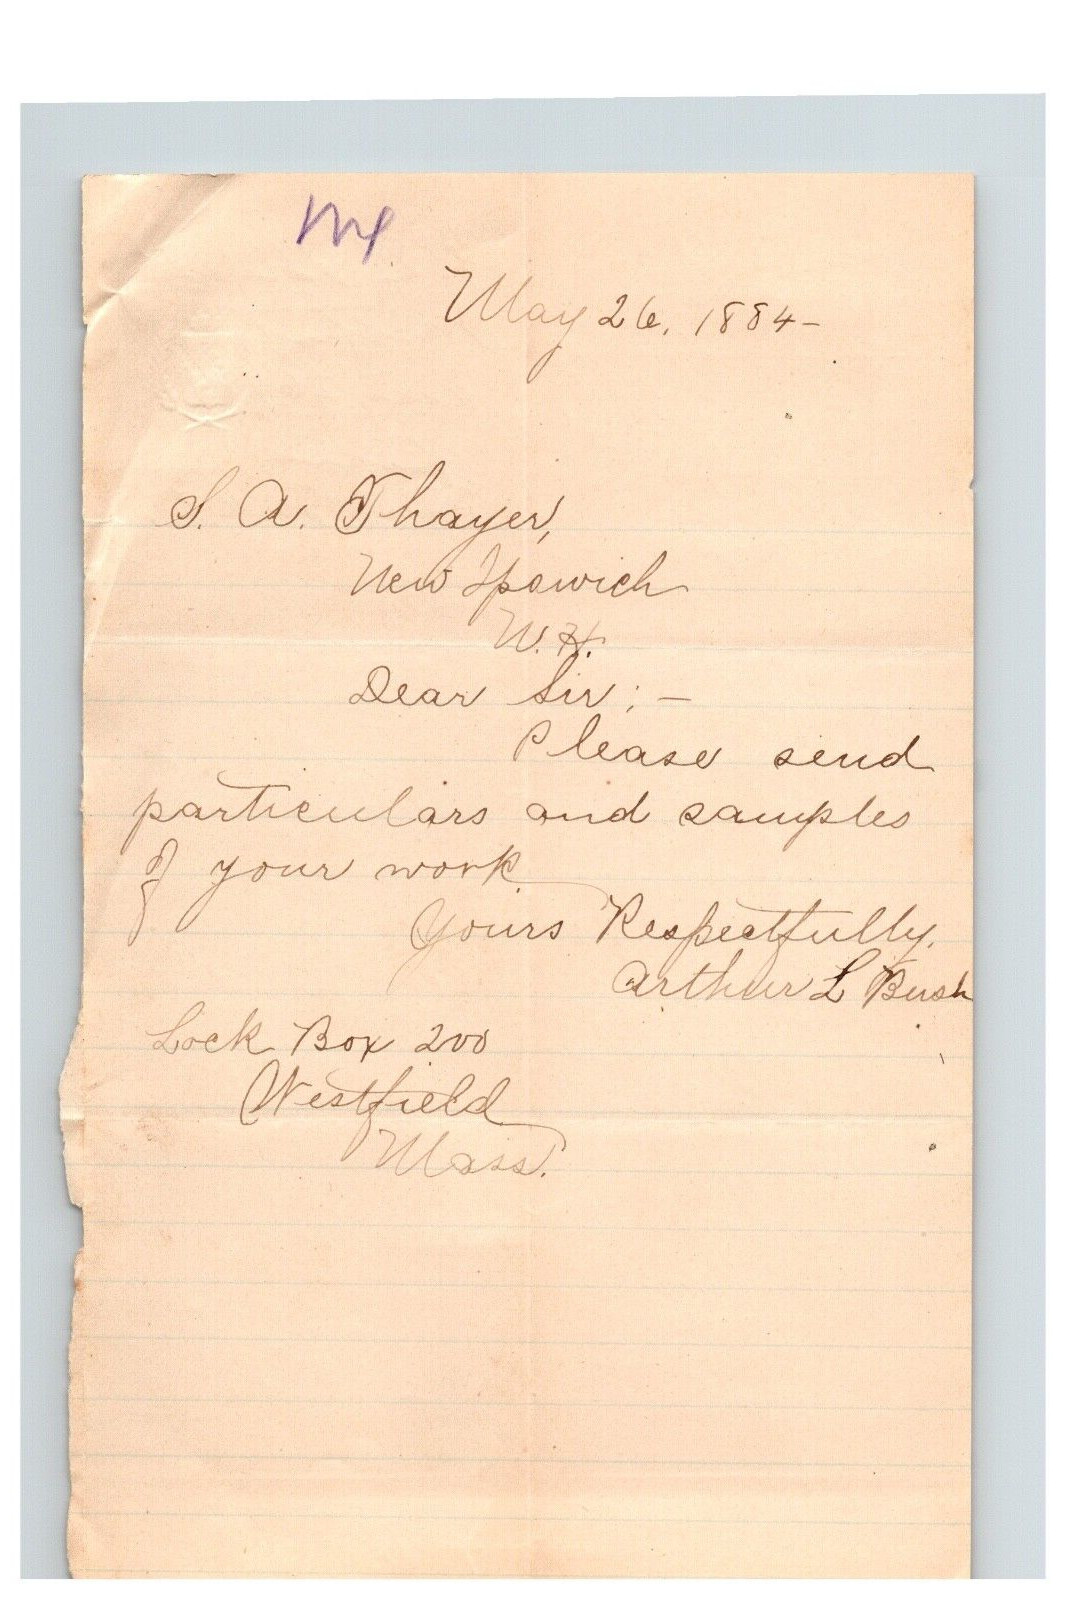 May 26, 1884-
S. A. Thayer,
New Ipswich
N. H.
Dear Sir; -
Please send
particulars and samples
of your work.
Yours Respectfully,
Arthur L Bush
Lock Box 200
Westfield
Mass.